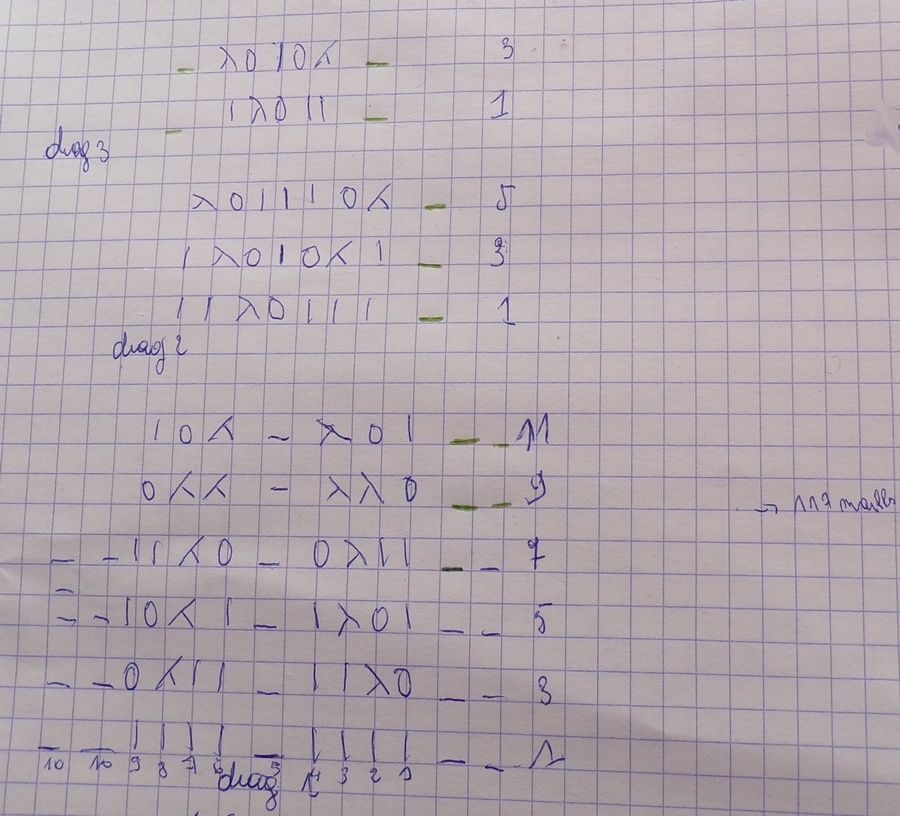 _ λ0|0⋌ _ 3
_ |λ0|| _ 1
diag 3
λ0|||0⋌ _ 5
|λ0|0⋌| _ 3
||λ0||| _ 1
diag 2
|0⋌ _ λ0| _ _ 11
0⋌⋌ _ λλ0 _ _ 9
→ 117 mailles
_ _ ||⋌0 _ 0λ|| _ _ 7
_ _ |0⋌| _ |λ0| _ _ 5
_ _ 0⋌|| _ ||λ0 _ _ 3
_ _ |||| _ |||| _ _ 1
10 10 9 8 7 6 5 4 3 2 1
diag